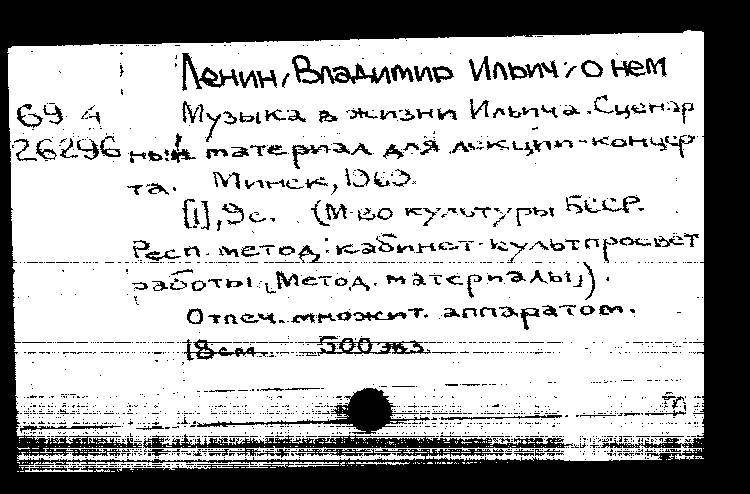 Ленин, Владимир Ильич, о нем
69 4 Музыка в жизни Ильича. Сценар
26296 ный материал для лекции-концер
та. Минск, 1969.
[1], 9с. (М-во культуры БССР.
Респ. метод. кабинет культпросвет
работы „Метод. материалы„).
Отпеч. множит. аппаратом.
18см. 500 экз.